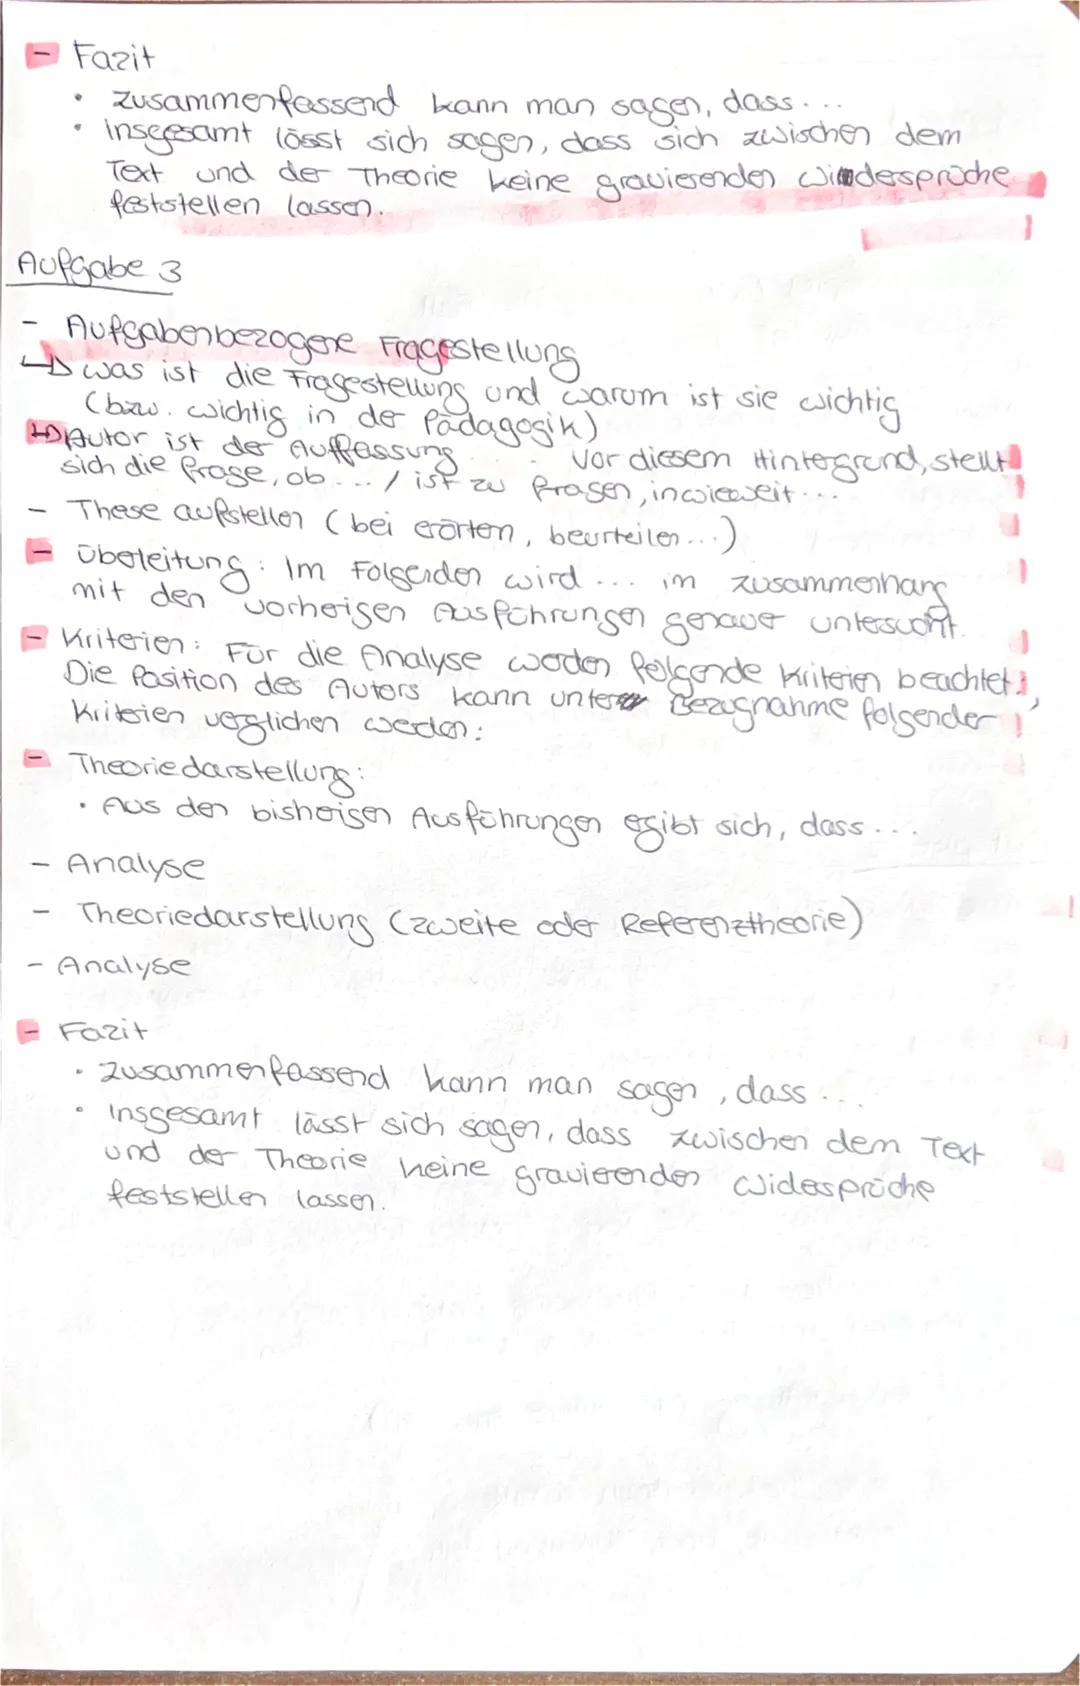 - Fazit
• zusammenfassend kann man sagen, dass...
• insgesamt lässt sich sagen, dass sich zwischen dem
Text und der Theorie keine gravierenden Widersprüche
feststellen lassen.
Aufgabe 3
- Aufgabenbezogene Fragestellung
↳ was ist die Fragestellung und warum ist sie wichtig
(bzw. wichtig in der Pädagogik)
↳ Autor ist der Auffassung ... Vor diesem Hintergrund, stellt
sich die Frage, ob... / ist zu fragen, inwieweit...
- These aufstellen (bei erörtern, beurteilen...)
- Überleitung: Im Folgenden wird ... im zusammenhang
mit den vorherigen Ausführungen genauer untersucht.
- Kriterien: Für die Analyse werden folgende Kriterien beachtet:
Die Position des Autors kann unter Bezugnahme folgender
Kriterien verglichen werden:
- Theoriedarstellung:
• Aus den bisherigen Ausführungen ergibt sich, dass...
- Analyse
- Theoriedarstellung (zweite oder Referenztheorie)
- Analyse
- Fazit
• zusammenfassend kann man sagen, dass ...
• insgesamt lässt sich sagen, dass zwischen dem Text
und der Theorie keine gravierenden Widersprüche
feststellen lassen.